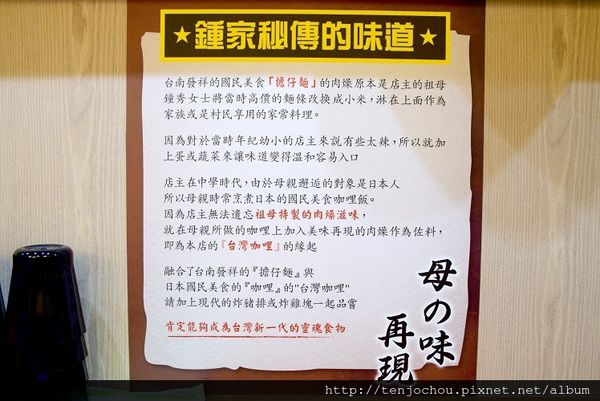 ★鍾家秘傳的味道★
台南發祥的國民美食「擔仔麵」的肉燥原本是店主的祖母
鐘秀女士將當時高價的麵條改換成小米，淋在上面作為
家族或是村民享用的家常料理。
因為對於當時年紀幼小的店主來說有些太辣，所以就加
上蛋或蔬菜來讓味道變得溫和容易入口
店主在中學時代，由於母親邂逅的對象是日本人
所以母親時常烹煮日本的國民美食咖哩飯。
因為店主無法遺忘祖母特製的肉燥滋味，
就在母親所做的咖哩上加入美味再現的肉燥作為佐料，
即為本店的『台灣咖哩』的緣起
融合了台南發祥的『擔仔麵』與
日本國民美食的『咖哩』的"台灣咖哩"
請加上現代的炸豬排或炸雞塊一起品嘗
肯定能夠成為台灣新一代的靈魂食物
母の味
再現
http://tenjochou.pixnet.net/album